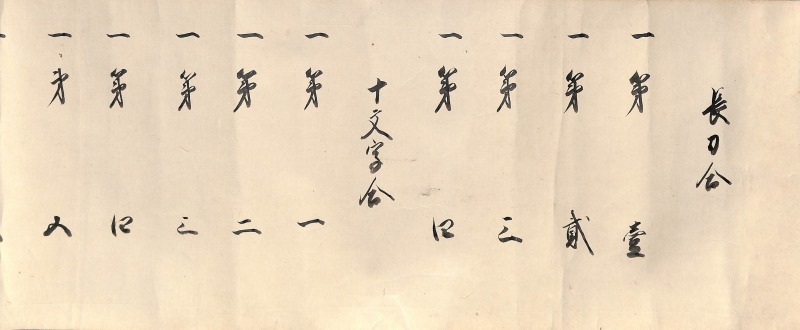 長刀合
一第壹
一第貳
一第三
一第四
十文字合
一第一
一第二
一第三
一第四
一第五